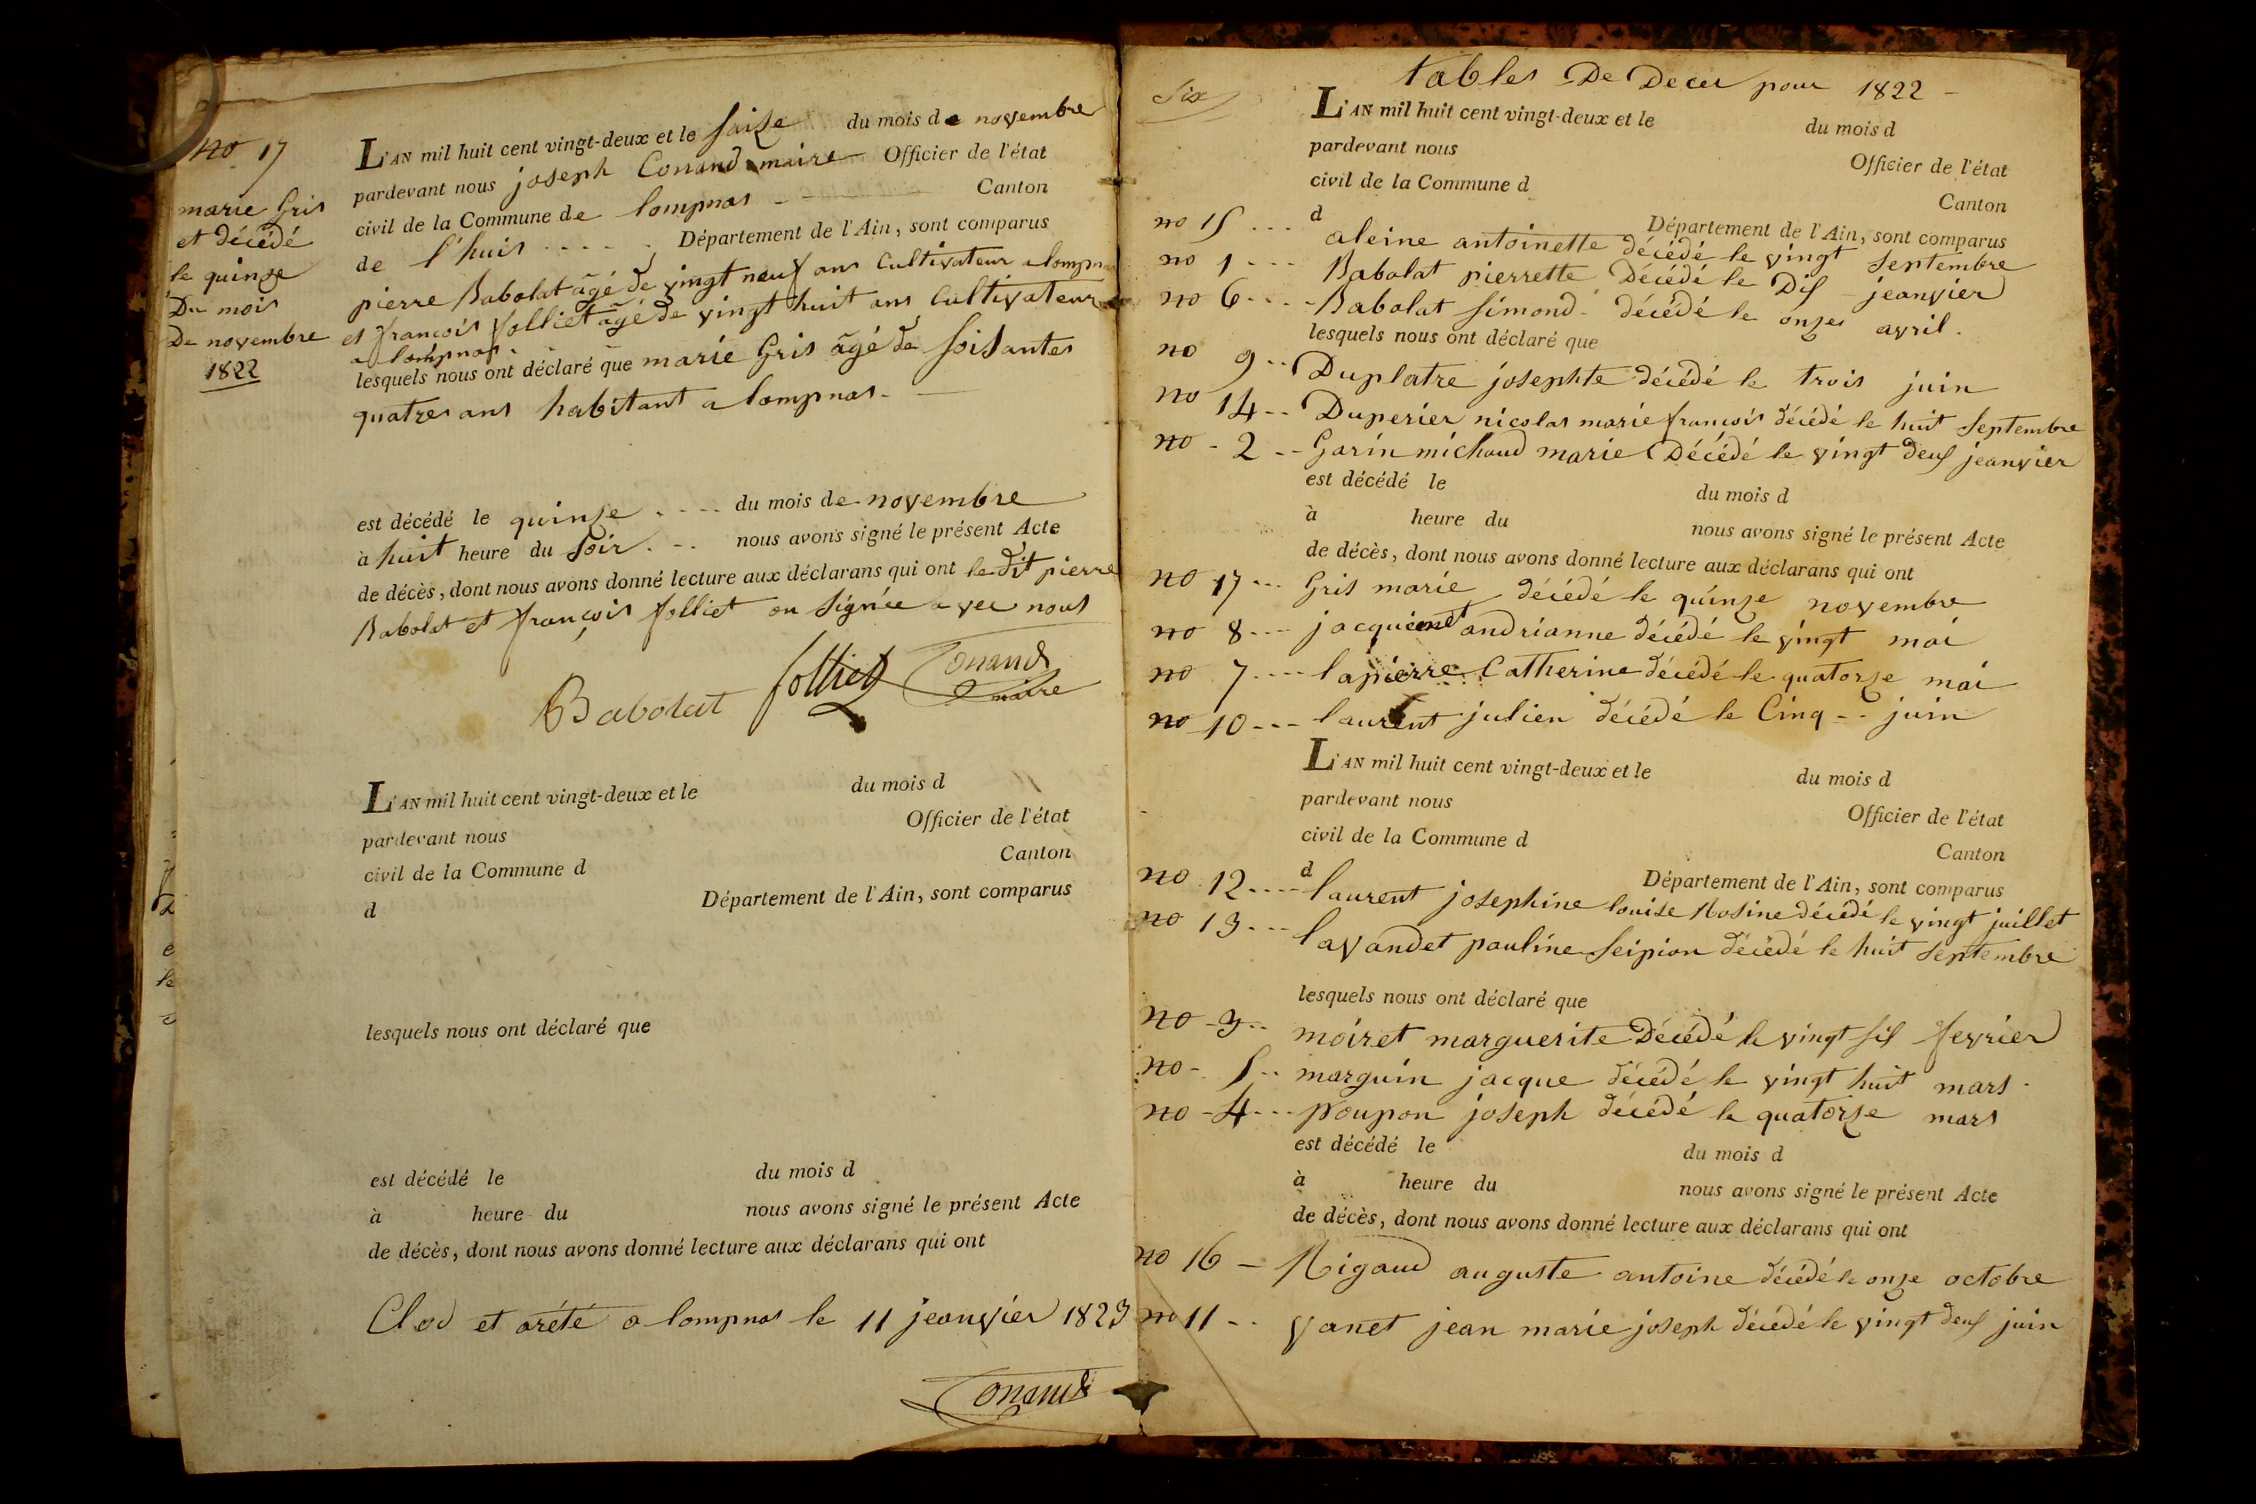 no 17
marie Gris
et décédé
le quinze
Du mois
De novembre
1822
L'AN mil huit cent vingt-deux et le saize du mois de novembre
pardevant nous joseph Conand maire Officier de l'état
civil de la Commune de lompnas Canton
de l'huis Département de l'Ain, sont comparus
pierre Babolat âgé de vingt neuf ans Cultivateur a lompnas
et françois folliet âgé de vingt huit ans Cultivateur
a lompnas
lesquels nous ont déclaré que marie Gris âgé de soisantes
quatres ans habitant a lompnas
est décédé le quinze du mois de novembre
à huit heure du soir nous avons signé le présent Acte
de décès, dont nous avons donné lecture aux déclarans qui ont le dit pierre
Babolat et françois folliet on signée avec nous
Babolat folliet Conand
maire
L'AN mil huit cent vingt-deux et le du mois d
pardevant nous Officier de l'état
civil de la Commune d Canton
d Département de l'Ain, sont comparus
lesquels nous ont déclaré que
est décédé le du mois d
à heure du nous avons signé le présent Acte
de décès, dont nous avons donné lecture aux déclarans qui ont
Clod et arété a lompnas le 11 jeanvier 1823
Conand
Six
tables De Decer pour 1822
L'AN mil huit cent vingt-deux et le du mois d
pardevant nous Officier de l'état
civil de la Commune d Canton
d Département de l'Ain, sont comparus
no 15 aleine antoinette décédé le vingt septembre
no 1 Babolat pierrette Décédé le Dis jeanvier
no 6 Babolat simond décédé le onzes avril
lesquels nous ont déclaré que
no 9 Duplatre josephte décédé le trois juin
no 14 Duperier nicolas marie françois décédé le huit septembre
no 2 Garin michaud marie Décédé le vingt deus jeanvier
est décédé le du mois d
à heure du nous avons signé le présent Acte
de décès, dont nous avons donné lecture aux déclarans qui ont
no 17 Gris marie décédé le quinze novembre
no 8 jacquemet andrianne décédé le vingt mai
no 7 lapierre Catherine décédé le quatorze mai
no 10 laurent julien décédé le Cinq juin
L'AN mil huit cent vingt-deux et le du mois d
pardevant nous Officier de l'état
civil de la Commune d Canton
d Département de l'Ain, sont comparus
no 12 laurent josephine louise Rosine décédé le vingt juillet
no 13 lavandet pauline Seipion décédé le huit septembre
lesquels nous ont déclaré que
no 3 moiret marguerite Décédé le vingt sis fevrier
no 5 marguin jacque décédé le vingt huit mars
no 4 poupon joseph décédé le quatorze mars
est décédé le du mois d
à heure du nous avons signé le présent Acte
de décès, dont nous avons donné lecture aux déclarans qui ont
no 16 Rigaud auguste antoine décédé le onze octobre
no 11 vanet jean marie joseph décédé le vingt deus juin